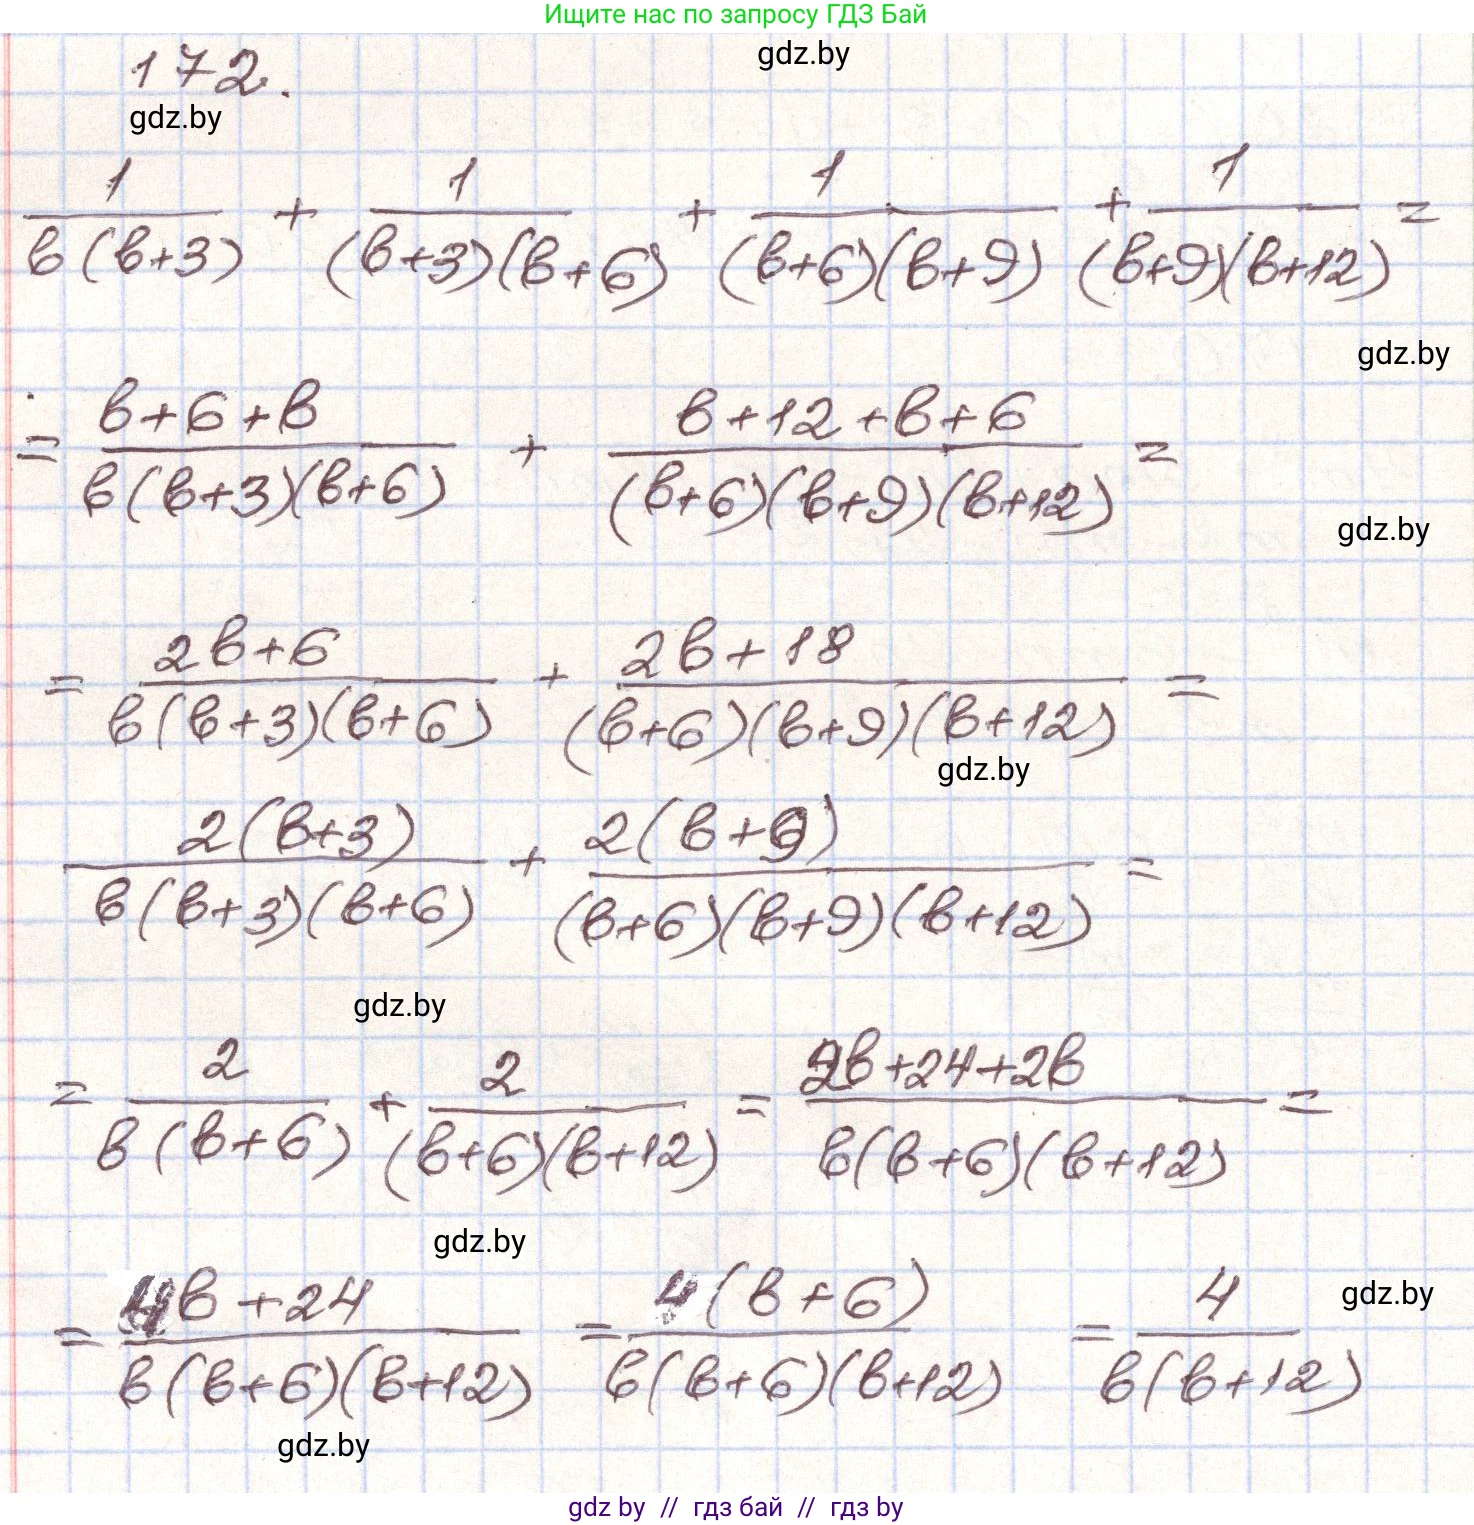 Ищите нас по запросу ГДЗ Бай
172.
gdz.by
gdz.by
1/(в(в+3)) + 1/((в+3)(в+6)) + 1/((в+6)(в+9)) + 1/((в+9)(в+12)) =
gdz.by
= (в+6+в)/(в(в+3)(в+6)) + (в+12+в+6)/((в+6)(в+9)(в+12)) =
gdz.by
= (2в+6)/(в(в+3)(в+6)) + (2в+18)/((в+6)(в+9)(в+12)) =
gdz.by
2(в+3)/(в(в+3)(в+6)) + 2(в+9)/((в+6)(в+9)(в+12)) =
gdz.by
= 2/(в(в+6)) + 2/((в+6)(в+12)) = (2в+24+2в)/(в(в+6)(в+12)) =
gdz.by
= (4в+24)/(в(в+6)(в+12)) = 4(в+6)/(в(в+6)(в+12)) = 4/(в(в+12))
gdz.by
gdz.by
gdz by // гдз бай // гдз by